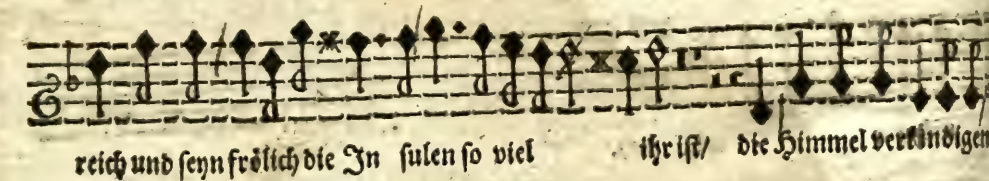 reich und seyn frölich die In sulen so viel ihr ist/ die Himmel verkündigen